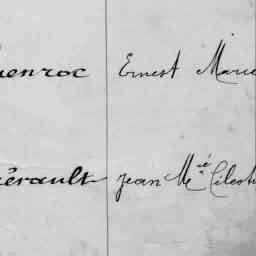 uenroc Ernest Marce
érault Jean Mᵉ́ Célesti